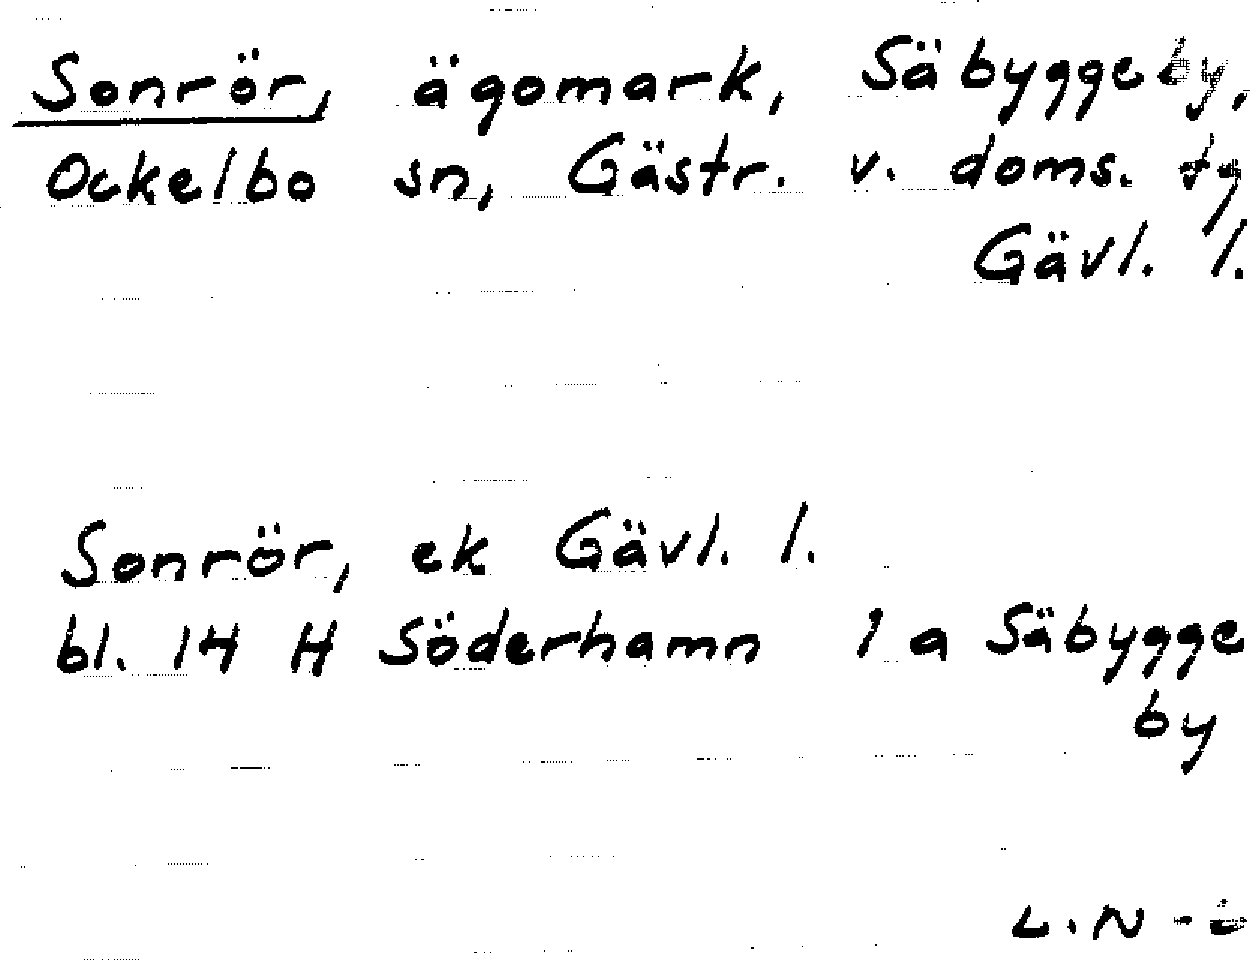 Sonrör, ägomark, Säbyggeby,
Ockelbo sn, Gästr. v. doms. tg
Gävl. l.
Sonrör, ek Gävl. l.
bl. 14 H Söderhamn 1 a Säbygge
by